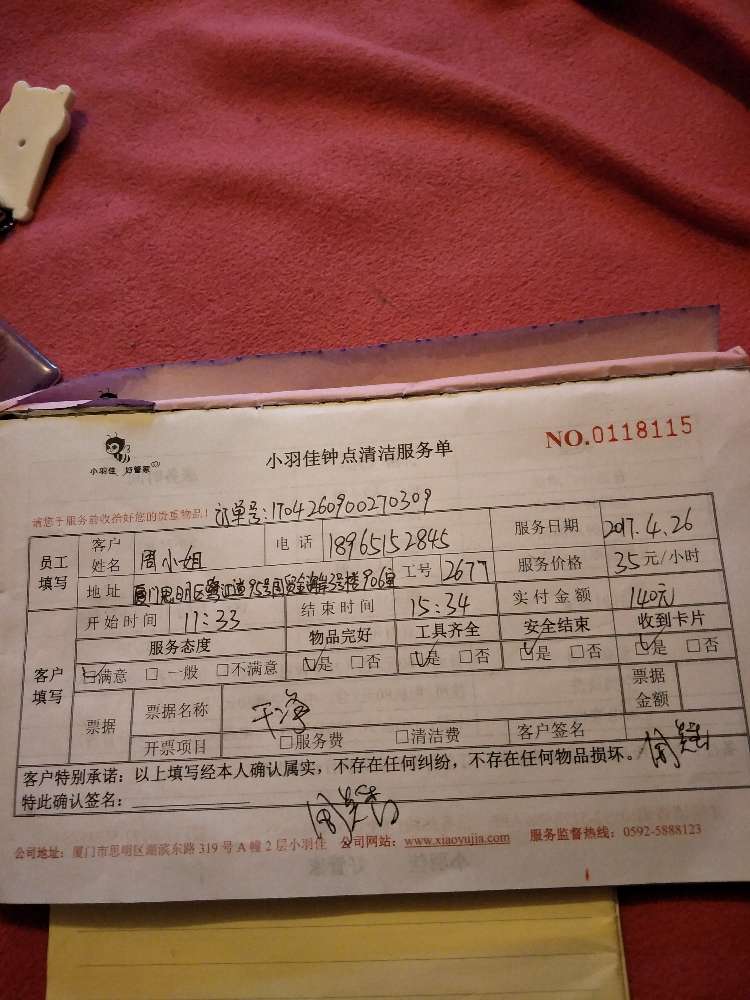 小羽佳 好管家
小羽佳钟点清洁服务单
NO.0118115
请您于服务前收拾好您的贵重物品！ 订单号:1704260900270309
员工填写 客户姓名 周小姐 电话 18965152845 服务日期 2017.4.26
地址 厦门思明区鹭江道95号国贸金海岸3号楼906室 工号 2677 服务价格 35元/小时
客户填写 开始时间 11:33 结束时间 15:34 实付金额 140元
服务态度 物品完好 工具齐全 安全结束 收到卡片
☑满意 □一般 □不满意 ☑是 □否 ☑是 □否 ☑是 □否 ☑是 □否
票据 票据名称 干净 票据金额
开票项目 □服务费 □清洁费 客户签名
客户特别承诺：以上填写经本人确认属实，不存在任何纠纷，不存在任何物品损坏。
特此确认签名：
公司地址：厦门市思明区湖滨东路 319 号 A 幢 2 层小羽佳 公司网站：www.xiaoyujia.com 服务监督热线：0592-5888123